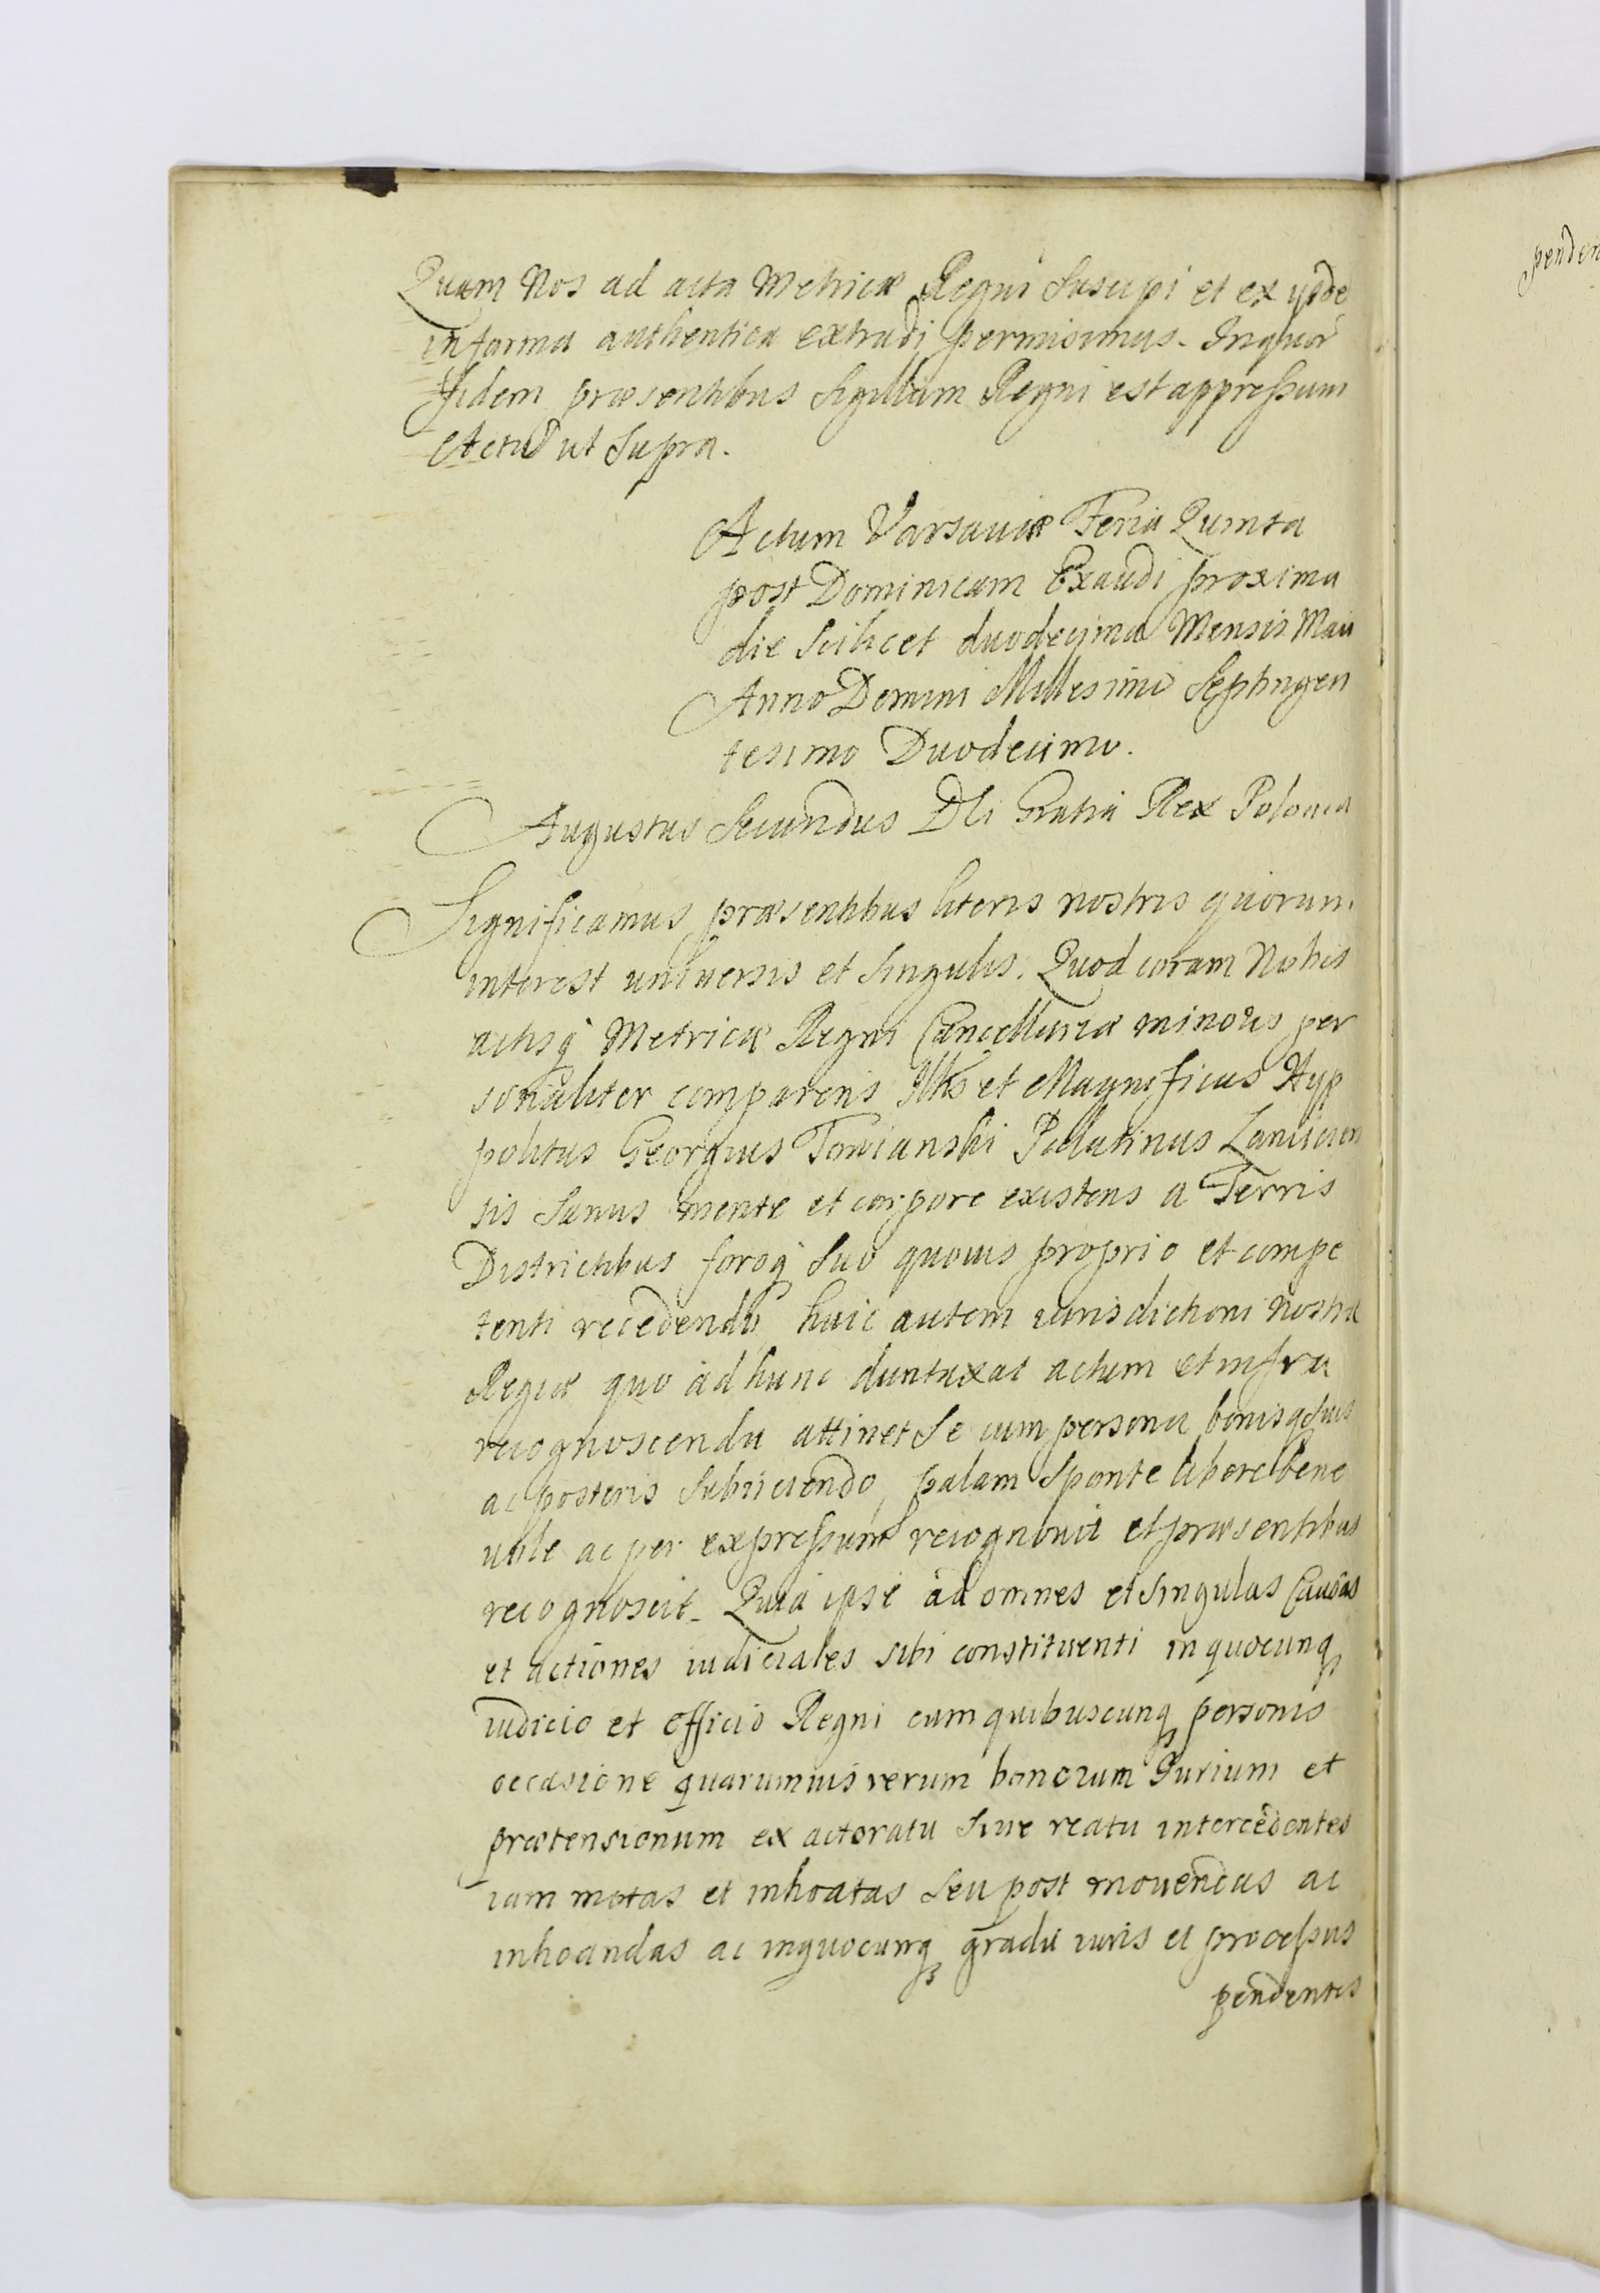 Quam Nos ad acta Metricæ Regni Suscipi et ex ijsdē
in forma authentica extradi permisimus. In quor̄
fidem præsentibus Sigillum Regni est appressum
Actū ut Supra.
Actum Varsaviæ Feria Quinta
post Dominicam Exaudi proxima
die Scilicet duodecima Mensis Maii
Anno Domini Millesimo Septingen
tesimo Duodecimo.
Augustus Secundus DEi Gratia Rex Poloniæ
Significamus præsentibus literis nostris quorum
interest universis et Singulis. Quod coram Nobis
actisq Metricæ Regni Cancellariæ minoris per
sonaliter comparens Illr̄is et Magnificus Hyp
politus Georgius Towianski Pallatinus Lancicien
sis Sanus mente et corpore existens a Terris
Districtibus foroq Suo quovis proprio et compe
tenti recedendo huic autem iurisdictioni Nostræ
Regiæ quo ad hunc duntaxat actum et infra
recognoscenda attinet Se cum persona bonisq Suis
ac posteris Subiiciendo, palam Sponte libere bene
vole ac per expressum recognovit et præsentibus
recognoscit. Quia ipse ad omnes et Singulas Causas
et actiones iudiciales sibi constituenti in quocunq
iudicio et officio Regni cum quibuscunq personis
occasione quarumvis rerum bonorum Iurium et
prætensionum ex actoratu Sive reatu intercedentes
iam motas et inhoatas Seu post movendas ac
inhoandas ac in quocunq gradu iuris et processus
pendentes
penden